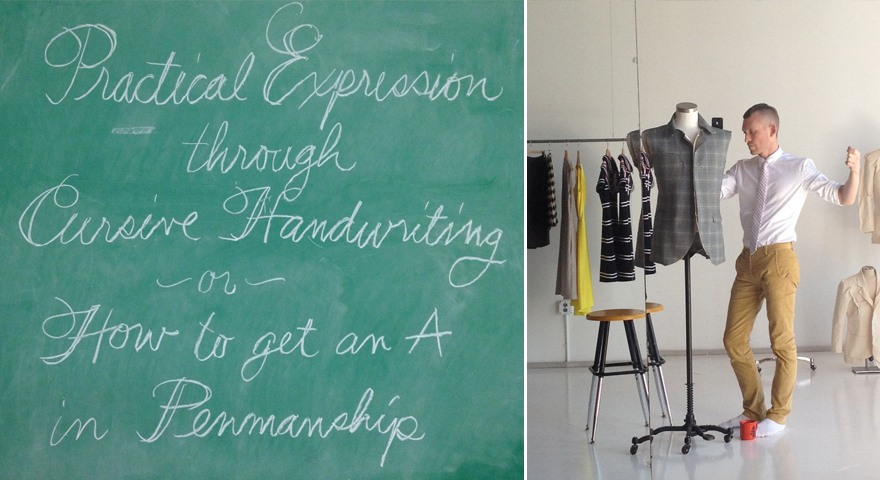 Practical Expression
through
Cursive Handwriting
~ or ~
How to get an A
in Penmanship